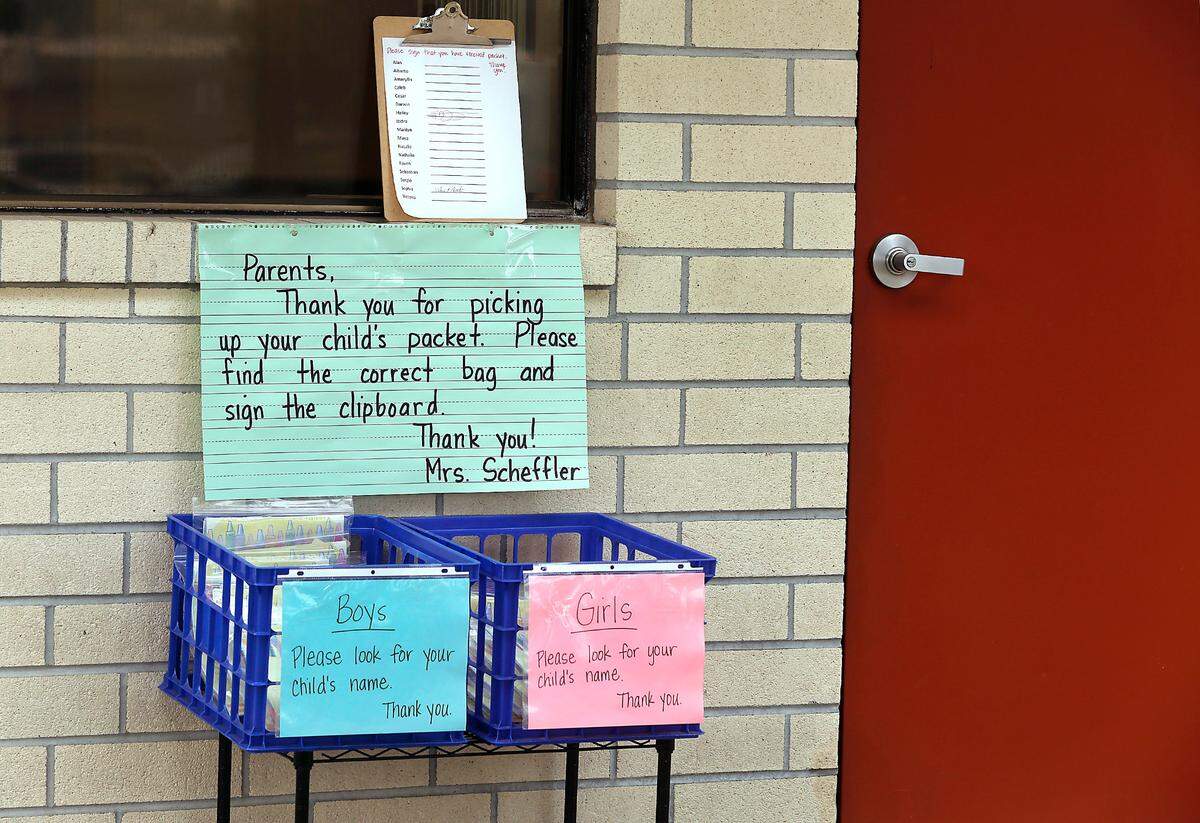 Please sign that you have received packet.
Thank
you!
Alan
Alberto
Amaryllis
Caleb
Cesar
Hailey
Isidro
Marilyn
Natalie
Nathalie
Sebastian
Sergio
Sophia
Victoria
Parents,
Thank you for picking
up your child's packet. Please
find the correct bag and
sign the clipboard.
Thank you!
Mrs. Scheffler
Boys
Please look for your
child's name.
Thank you.
Girls
Please look for your
child's name.
Thank you.